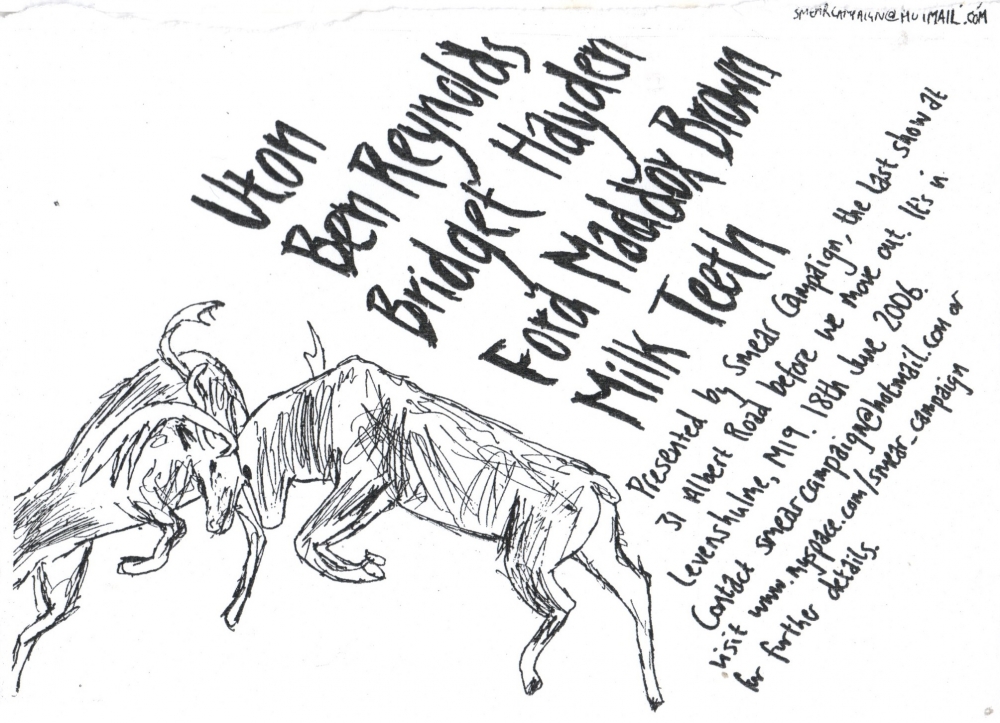 SMEARCAMPAIGN@HOTMAIL.COM
Uton
Ben Reynolds
Bridget Hayden
Ford Maddox Brown
Milk Teeth
Presented by Smear Campaign, the last show at
31 Albert Road before we move out. It's in
Levenshulme, M19. 18th June 2006.
Contact smearcampaign@hotmail.com or
visit www.myspace.com/smear_campaign
for further details.